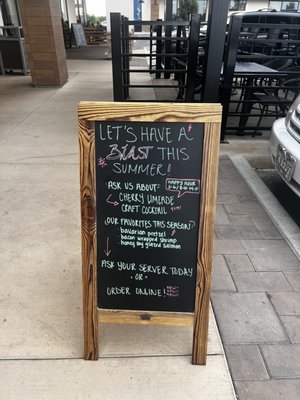 LET'S HAVE A
BLAST THIS
SUMMER!
ASK US ABOUT:
HAPPY HOUR
CHERRY LIMEADE
CRAFT COCKTAIL
OUR FAVORITES THIS SEASON:
- bavarian pretzel
- bacon wrapped shrimp
- honey soy glazed salmon
ASK YOUR SERVER TODAY
- OR -
ORDER ONLINE!